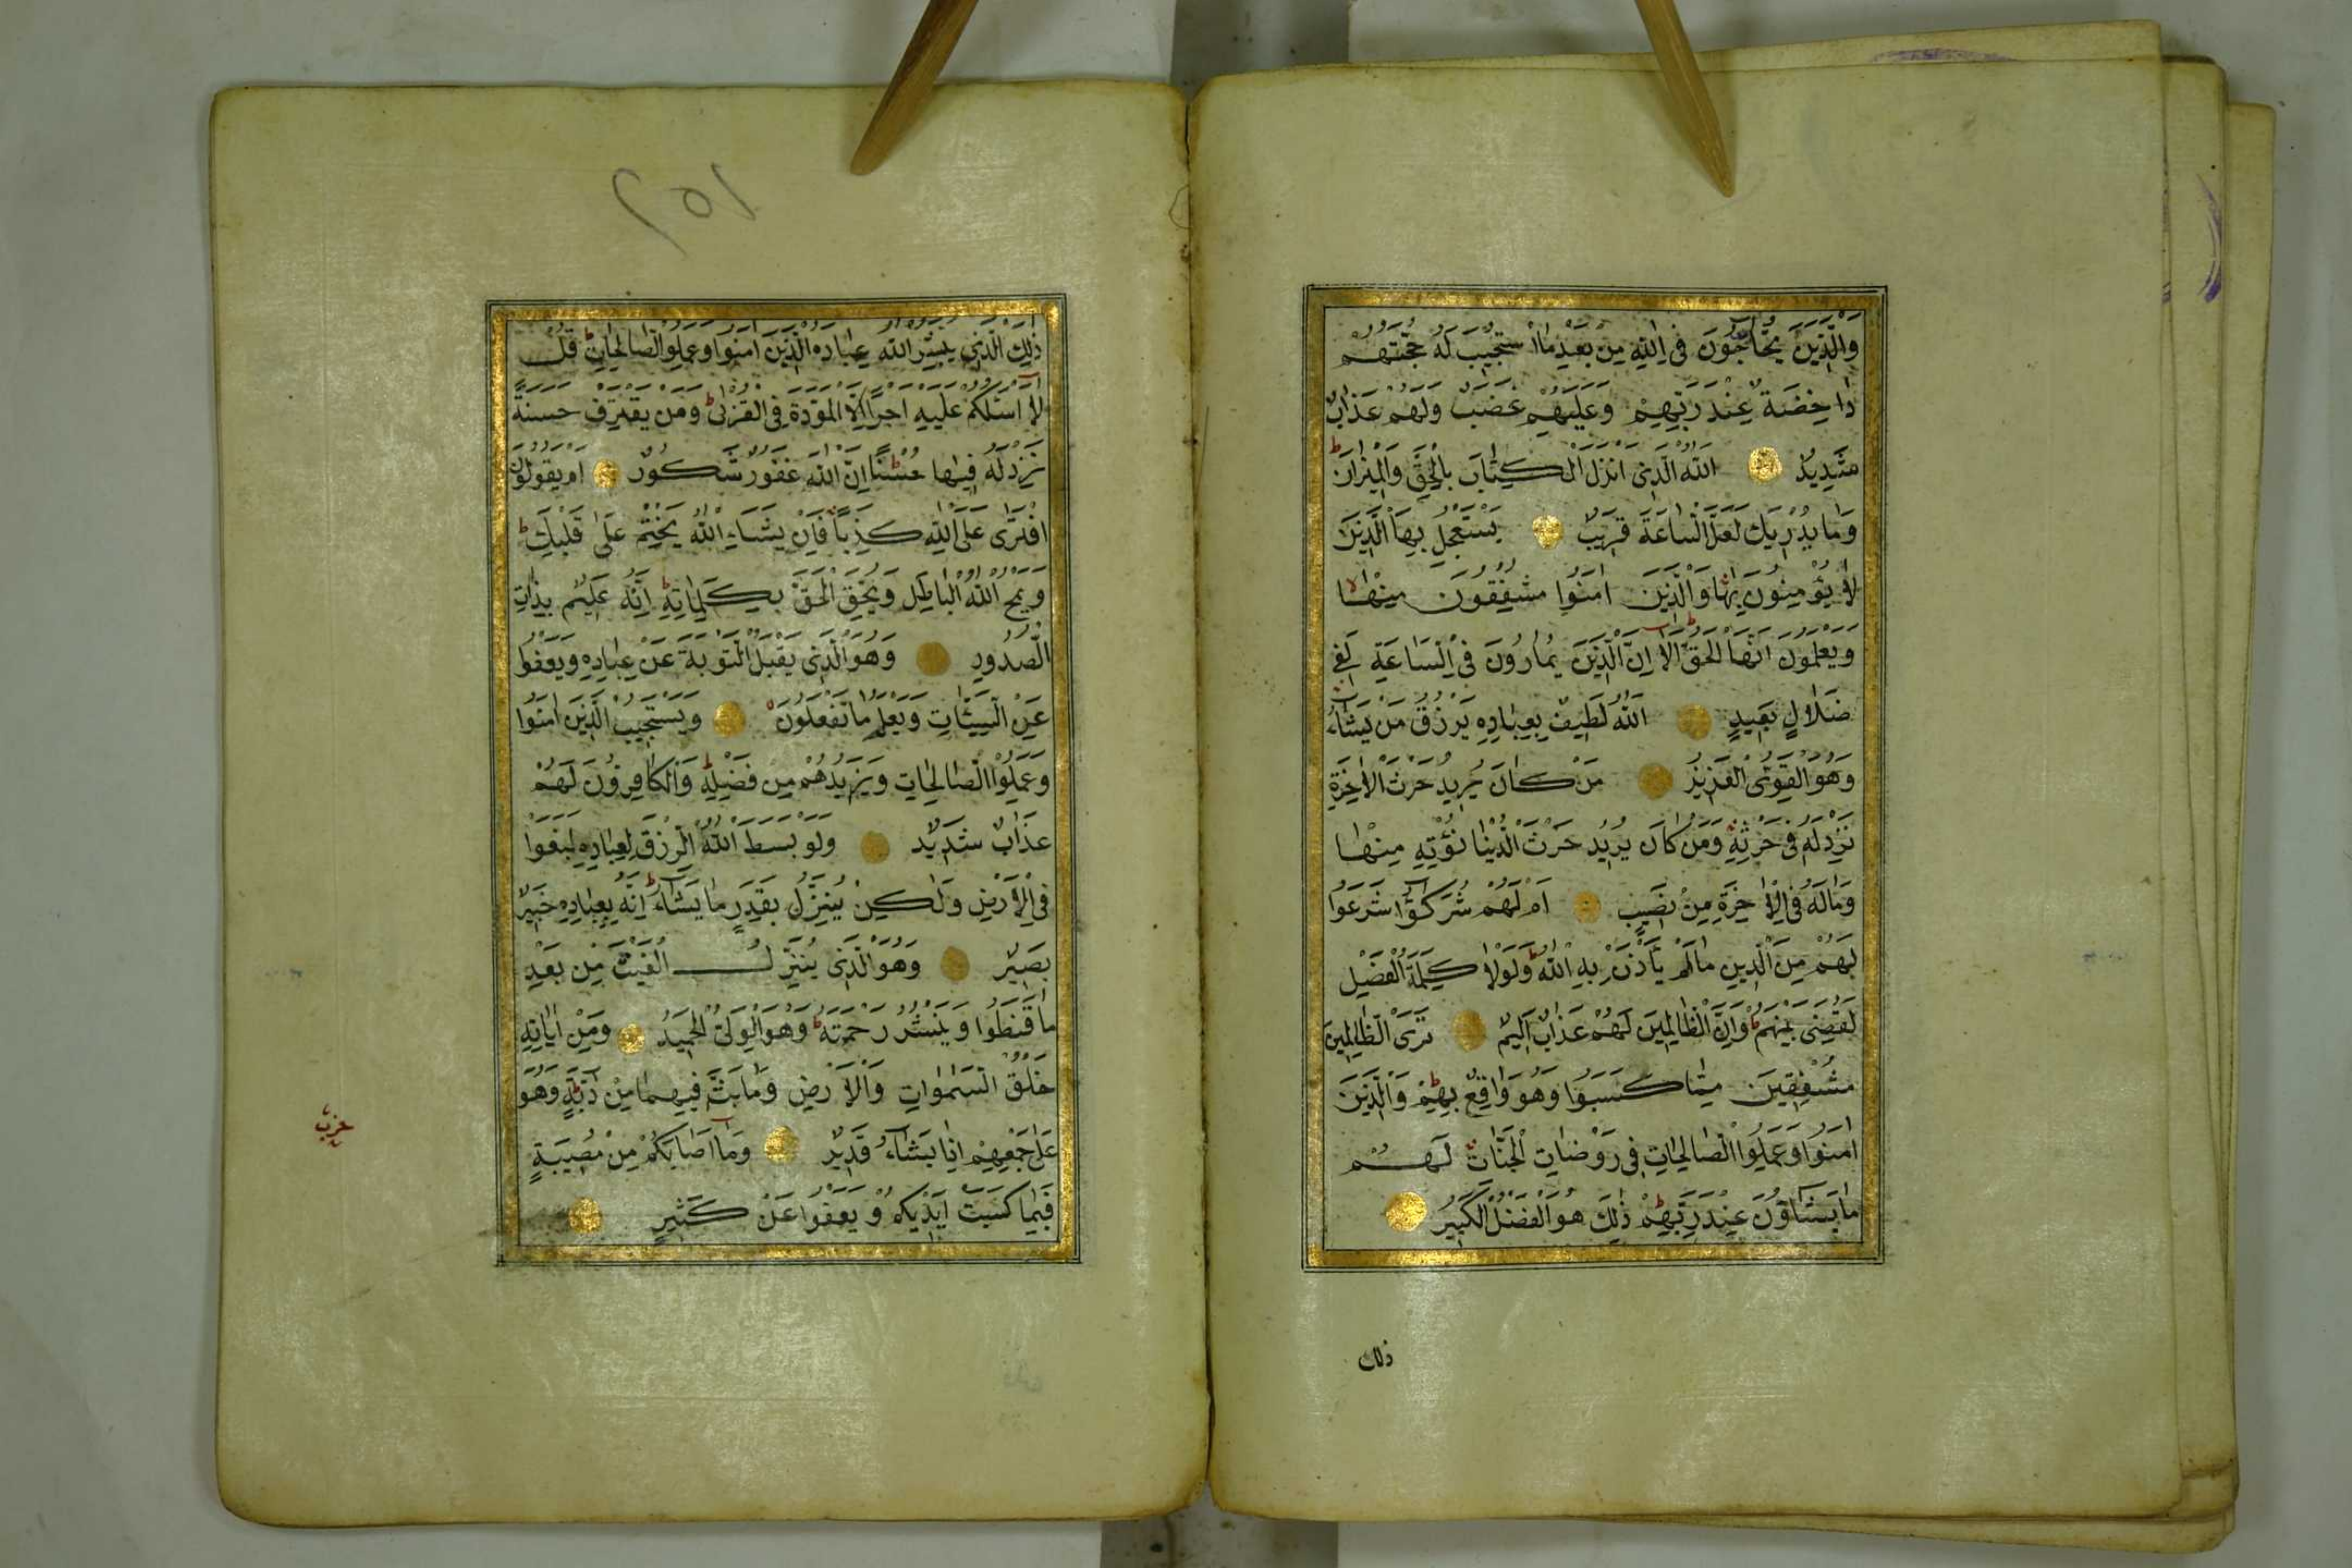 وَالَّذِينَ يُحَاجُّونَ فِى اللّٰهِ مِنْ بَعْدِ مَا اسْتُجِيبَ لَهُ حُجَّتُهُمْ
دَاحِضَةٌ عِنْدَ رَبِّهِمْ وَعَلَيْهِمْ غَضَبٌ وَلَهُمْ عَذَابٌ
شَدِيدٌ اَللّٰهُ الَّذِى اَنْزَلَ الْكِتَابَ بِالْحَقِّ وَالْمِيزَانَ ط
وَمَا يُدْرِيكَ لَعَلَّ السَّاعَةَ قَرِيبٌ يَسْتَعْجِلُ بِهَا الَّذِينَ
لَا يُؤْمِنُونَ بِهَا وَالَّذِينَ اٰمَنُوا مُشْفِقُونَ مِنْهَا لا
وَيَعْلَمُونَ اَنَّهَا الْحَقُّ ط اَلَا اِنَّ الَّذِينَ يُمَارُونَ فِى السَّاعَةِ لَفِى
ضَلَالٍ بَعِيدٍ اَللّٰهُ لَطِيفٌ بِعِبَادِهِ يَرْزُقُ مَنْ يَشَاءُ
وَهُوَ الْقَوِىُّ الْعَزِيزُ مَنْ كَانَ يُرِيدُ حَرْثَ الْاٰخِرَةِ
نَزِدْ لَهُ فِى حَرْثِهِ وَمَنْ كَانَ يُرِيدُ حَرْثَ الدُّنْيَا نُؤْتِهِ مِنْهَا
وَمَا لَهُ فِى الْاٰخِرَةِ مِنْ نَصِيبٍ اَمْ لَهُمْ شُرَكٰؤُا شَرَعُوا
لَهُمْ مِنَ الدِّينِ مَا لَمْ يَأْذَنْ بِهِ اللّٰهُ ط وَلَوْلَا كَلِمَةُ الْفَصْلِ
لَقُضِىَ بَيْنَهُمْ ط وَاِنَّ الظَّالِمِينَ لَهُمْ عَذَابٌ اَلِيمٌ تَرَى الظَّالِمِينَ
مُشْفِقِينَ مِمَّا كَسَبُوا وَهُوَ وَاقِعٌ بِهِمْ ط وَالَّذِينَ
اٰمَنُوا وَعَمِلُوا الصَّالِحَاتِ فِى رَوْضَاتِ الْجَنَّاتِ لَهُمْ
مَا يَشَاؤُنَ عِنْدَ رَبِّهِمْ ط ذٰلِكَ هُوَ الْفَضْلُ الْكَبِيرُ
ذلك
ذٰلِكَ الَّذِى يُبَشِّرُ اللّٰهُ عِبَادَهُ الَّذِينَ اٰمَنُوا وَعَمِلُوا الصَّالِحَاتِ ط قُلْ
لَا اَسْئَلُكُمْ عَلَيْهِ اَجْرًا اِلَّا الْمَوَدَّةَ فِى الْقُرْبٰى ط وَمَنْ يَقْتَرِفْ حَسَنَةً
نَزِدْ لَهُ فِيهَا حُسْنًا ط اِنَّ اللّٰهَ غَفُورٌ شَكُورٌ اَمْ يَقُولُونَ
افْتَرٰى عَلَى اللّٰهِ كَذِبًا فَاِنْ يَشَاءِ اللّٰهُ يَخْتِمْ عَلٰى قَلْبِكَ ط
وَيَمْحُ اللّٰهُ الْبَاطِلَ وَيُحِقُّ الْحَقَّ بِكَلِمَاتِهِ ط اِنَّهُ عَلِيمٌ بِذَاتِ
الصُّدُورِ وَهُوَ الَّذِى يَقْبَلُ التَّوْبَةَ عَنْ عِبَادِهِ وَيَعْفُوا
عَنِ السَّيِّئَاتِ وَيَعْلَمُ مَا تَفْعَلُونَ وَيَسْتَجِيبُ الَّذِينَ اٰمَنُوا
وَعَمِلُوا الصَّالِحَاتِ وَيَزِيدُهُمْ مِنْ فَضْلِهِ ط وَالْكَافِرُونَ لَهُمْ
عَذَابٌ شَدِيدٌ وَلَوْ بَسَطَ اللّٰهُ الرِّزْقَ لِعِبَادِهِ لَبَغَوْا
فِى الْاَرْضِ وَلٰكِنْ يُنَزِّلُ بِقَدَرٍ مَا يَشَاءُ ط اِنَّهُ بِعِبَادِهِ خَبِيرٌ
بَصِيرٌ وَهُوَ الَّذِى يُنَزِّلُ الْغَيْثَ مِنْ بَعْدِ
مَا قَنَطُوا وَيَنْشُرُ رَحْمَتَهُ ط وَهُوَ الْوَلِىُّ الْحَمِيدُ وَمِنْ اٰيَاتِهِ
خَلْقُ السَّمٰوَاتِ وَالْاَرْضِ وَمَا بَثَّ فِيهِمَا مِنْ دَابَّةٍ ط وَهُوَ
عَلٰى جَمْعِهِمْ اِذَا يَشَاءُ قَدِيرٌ وَمَا اَصَابَكُمْ مِنْ مُصِيبَةٍ
فَبِمَا كَسَبَتْ اَيْدِيكُمْ وَيَعْفُوا عَنْ كَثِيرٍ
حزب